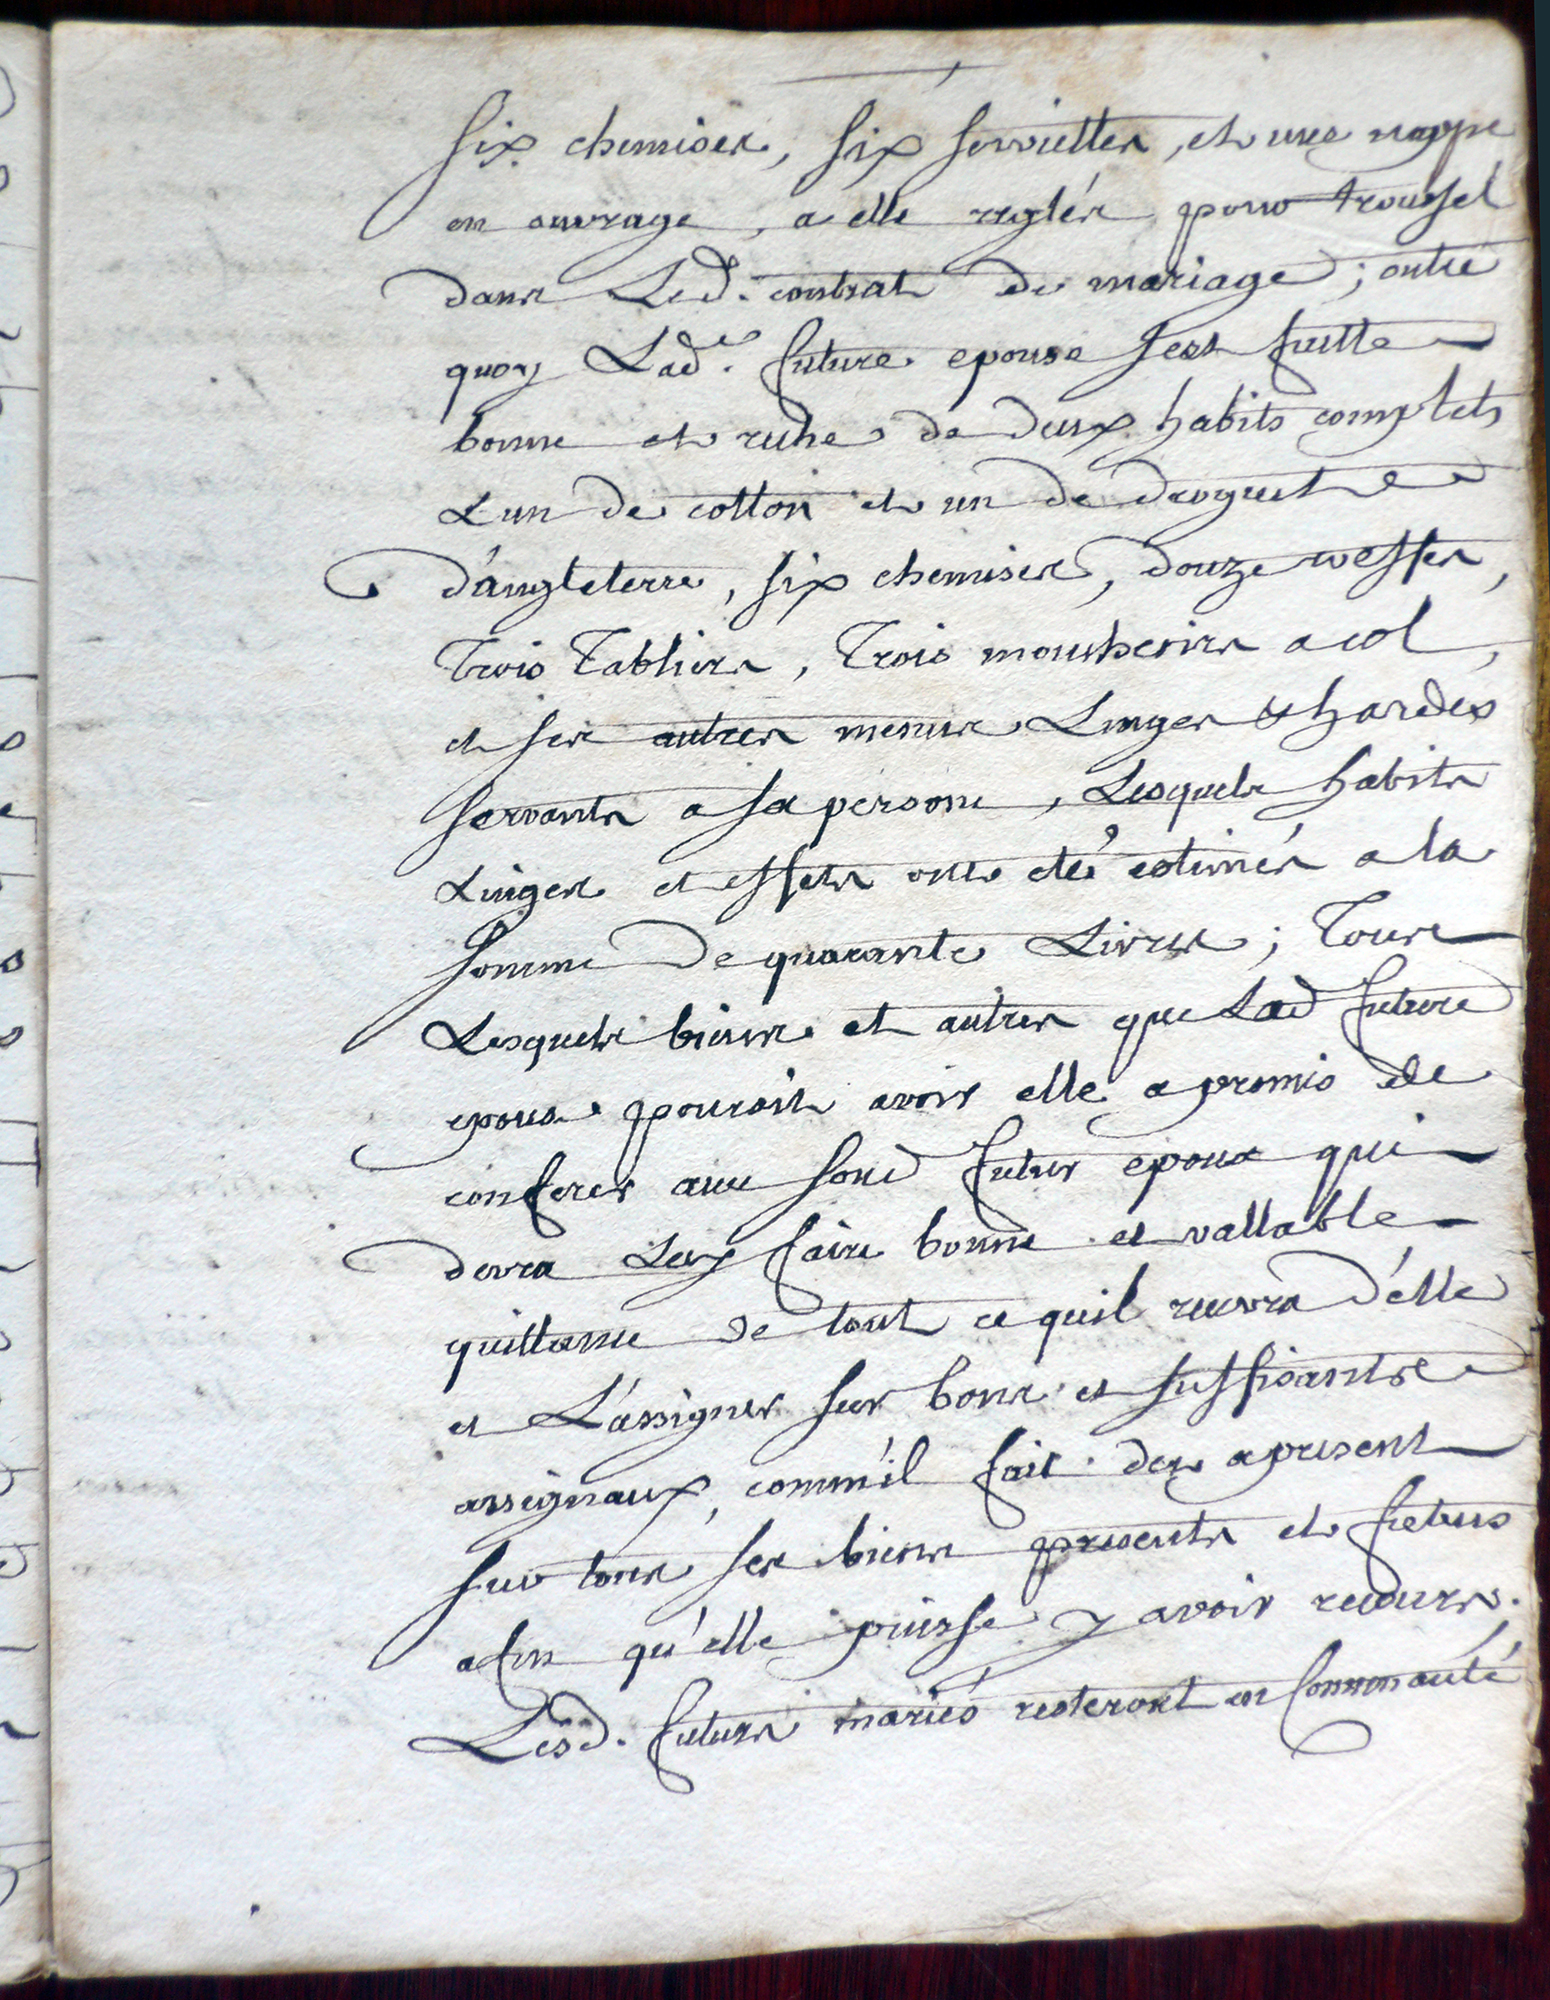 six chemises, six serviettes, et une nappe
en ouvrage, a elle reglés pour troussel
dans Led. contrat de mariage; outre
quoy Lad.e future epouse sest faitte
bonne et riche de deux habits complets
Lun de cotton et un de droguet
d'angleterre, six chemises, douze coeffes,
Trois Tabliers, Trois moucheoirs a col,
et ses autres menus Linges & hardes
servants a sa persone, Lesquels habits
Linges et effets ont eté estimés a la
somme de quarante Livres; Tous
Lesquels biens et autres que Lad future
epouse pouroit avoir elle a promis de
conferer avec sond futur epoux qui
devra Luy faire bonne et vallable
quittance de tout ce quil recevra d'elle
et L'assigner sur bons et suffisants
assignaux, comm'il fait des a present
sur tous ses biens presents et futurs
afin qu'elle puisse y avoir recours.
Lesd. futurs mariés resteront en Communauté